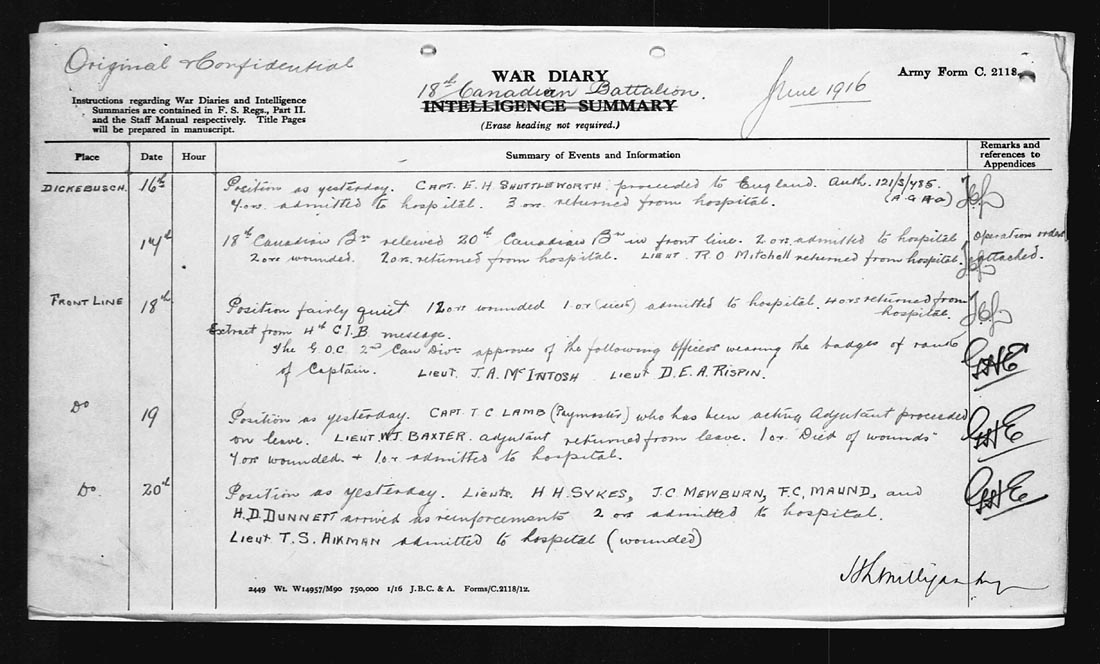 Original & Confidential
WAR DIARY
18th Canadian Battalion.
INTELLIGENCE SUMMARY
(Erase heading not required.)
June 1916
Army Form C. 2118.
Instructions regarding War Diaries and Intelligence
Summaries are contained in F. S. Regs., Part II.
and the Staff Manual respectively. Title Pages
will be prepared in manuscript.
Place Date Hour Summary of Events and Information Remarks and references to Appendices
DICKEBUSCH. 16th Position as yesterday. CAPT. E. H SHUTTLEWORTH proceeded to England. Auth. 121/S/785.
4 ors. admitted to hospital. 3 ors. returned from hospital.
17th 18th Canadian Bn relieved 20th Canadian Bn in front line. 2 ors. admitted to hospital Operation order
2 ors wounded. 2 ors. returned from hospital. LIEUT R O Mitchell returned from hospital. attached.
FRONT LINE 18th Position fairly quiet 12 ors wounded 1 or (sick) admitted to hospital. 4 ors returned from
hospital.
Extract from 4th C I.B message.
The G.O.C. 2nd Can Divn approves of the following Officers wearing the badges of rank
of Captain. LIEUT. J. A. McINTOSH LIEUT D. E. A. RISPIN.
Do 19 Position as yesterday. CAPT. T C LAMB (Paymaster) who has been acting Adjutant proceeded
on leave. LIEUT W.J. BAXTER. adjutant returned from leave. 1 or. Died of wounds
4 ors wounded. + 1 or admitted to hospital.
Do. 20th Position as yesterday. Lieuts. H H. SYKES, J.C. MEWBURN, F.C. MAUND, and
H.D. DUNNETT arrived as reinforcements 2 ors admitted to hospital.
LIEUT T. S. AIKMAN admitted to hospital (wounded)
2449 Wt. W14957/M90 750,000 1/16 J.B.C. & A. Forms/C.2118/12.